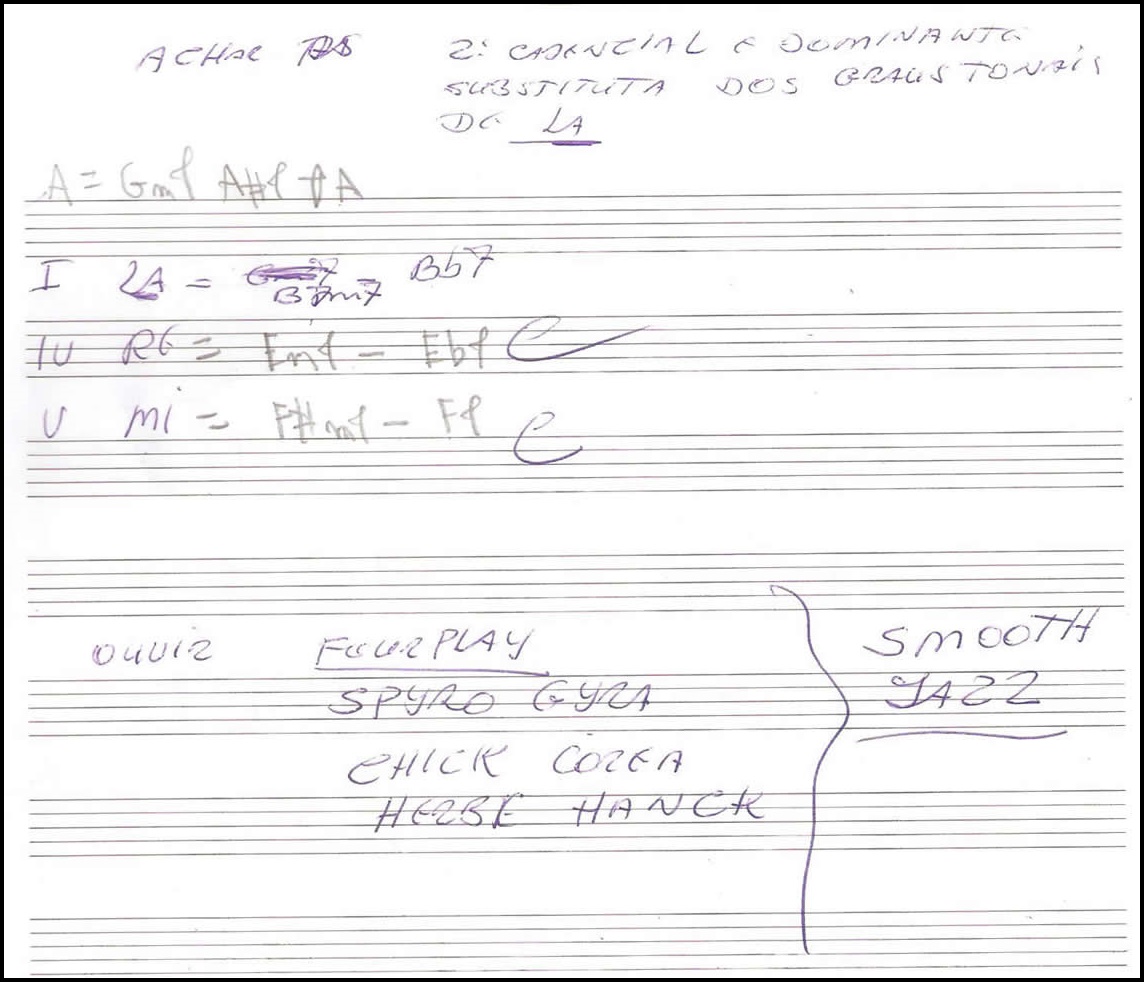 ACHAR AS 2ª CADENCIAL E DOMINANTE
SUBSTITUTA DOS GRAUS TONAIS
DE LA
A = Gm7 A#7 A
I LA = Bm7 - Bb7
IV RE = Em7 - Eb7 C
V MI = F#m7 - F7 C
OUVIR FOURPLAY
SPYRO GYRA
CHICK COREA
HERBE HANCK
SMOOTH
JAZZ